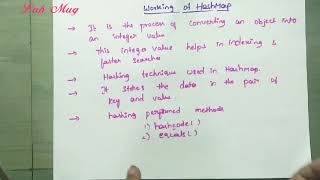 Lab Mug
Working of HashMap
→ It is the process of converting an object into
an integer value
→ This integer value helps in indexing &
faster searches
→ Hashing technique used in Hashmap.
→ It stores the data in the pair of
key and value.
→ hashing performed methods
1) hashcode()
2) equals()